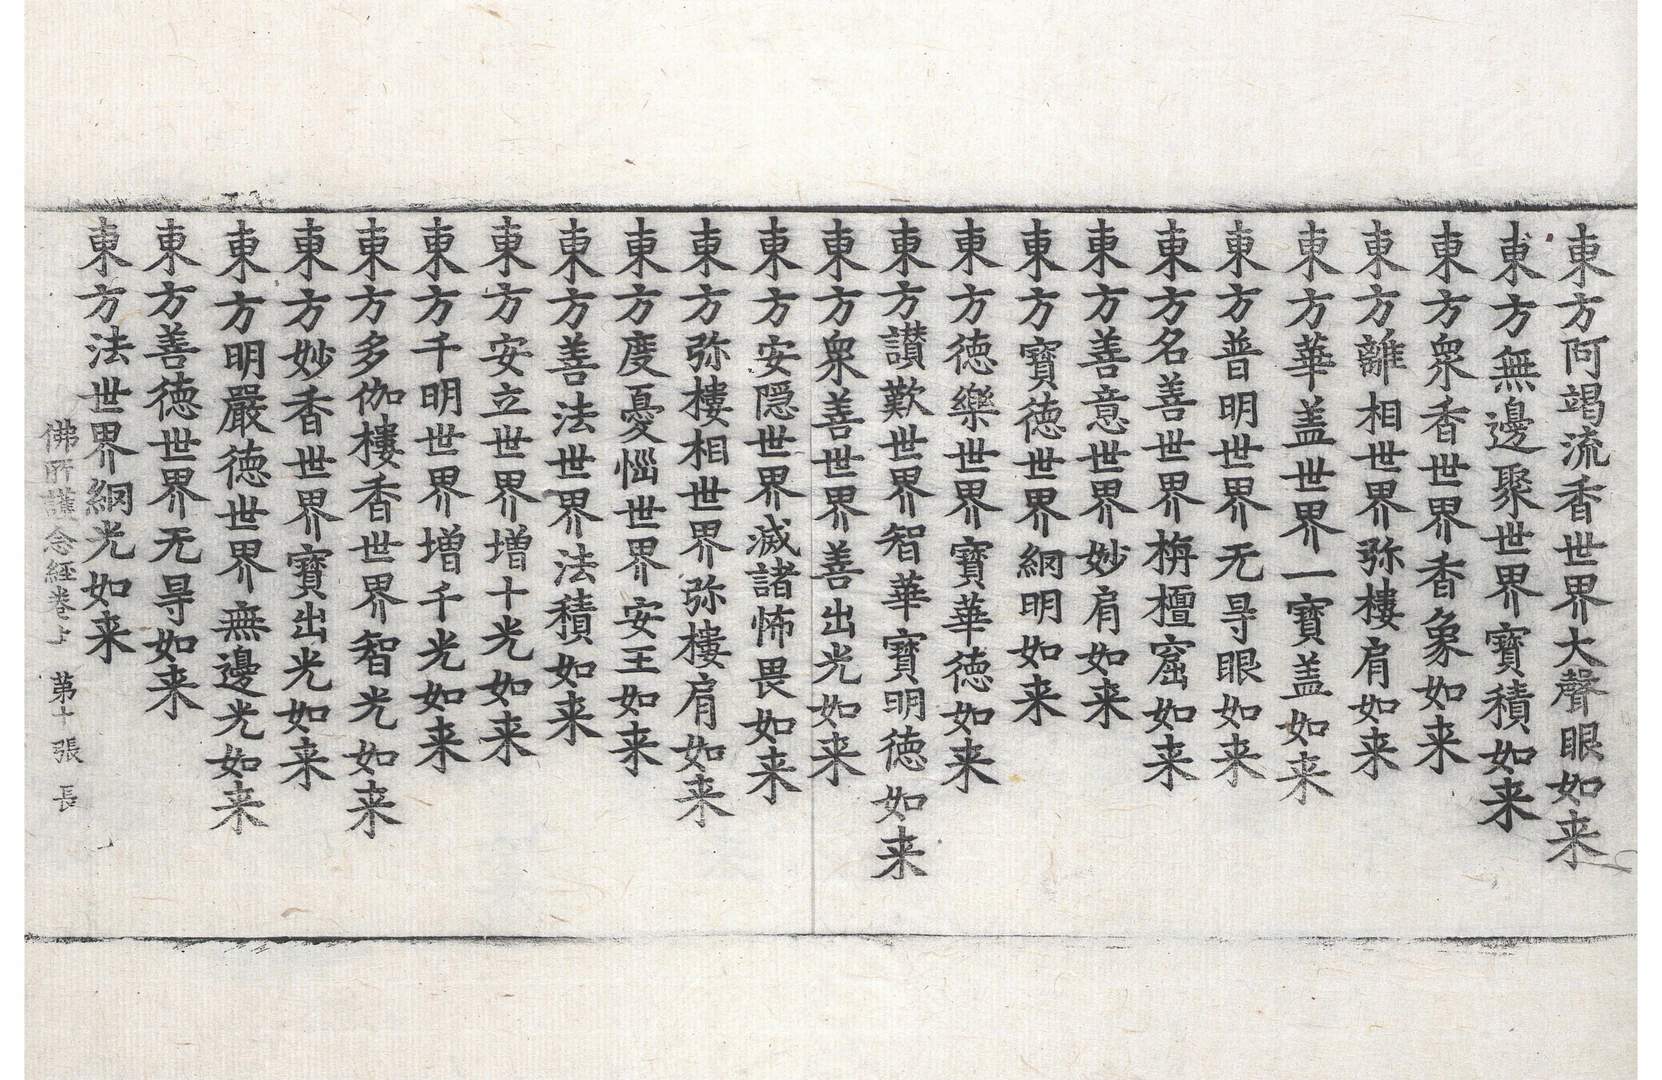 東方阿竭流香世界大聲眼如来
東方無邊聚世界寶積如来
東方衆香世界香象如来
東方離相世界弥樓肩如来
東方華盖世界一寶盖如来
東方普明世界无㝵眼如来
東方名善世界栴檀窟如来
東方善意世界妙肩如来
東方寶徳世界網明如来
東方徳樂世界寶華徳如来
東方讃歎世界智華寶明徳如来
東方衆善世界善出光如来
東方安隠世界滅諸怖畏如来
東方弥樓相世界弥樓肩如来
東方度憂惱世界安王如来
東方善法世界法積如来
東方安立世界増十光如来
東方千明世界増千光如来
東方多伽樓香世界智光如来
東方妙香世界寶出光如来
東方明嚴徳世界無邊光如来
東方善徳世界无㝵如来
東方法世界網光如来
佛所護念経巻上 第十張 長